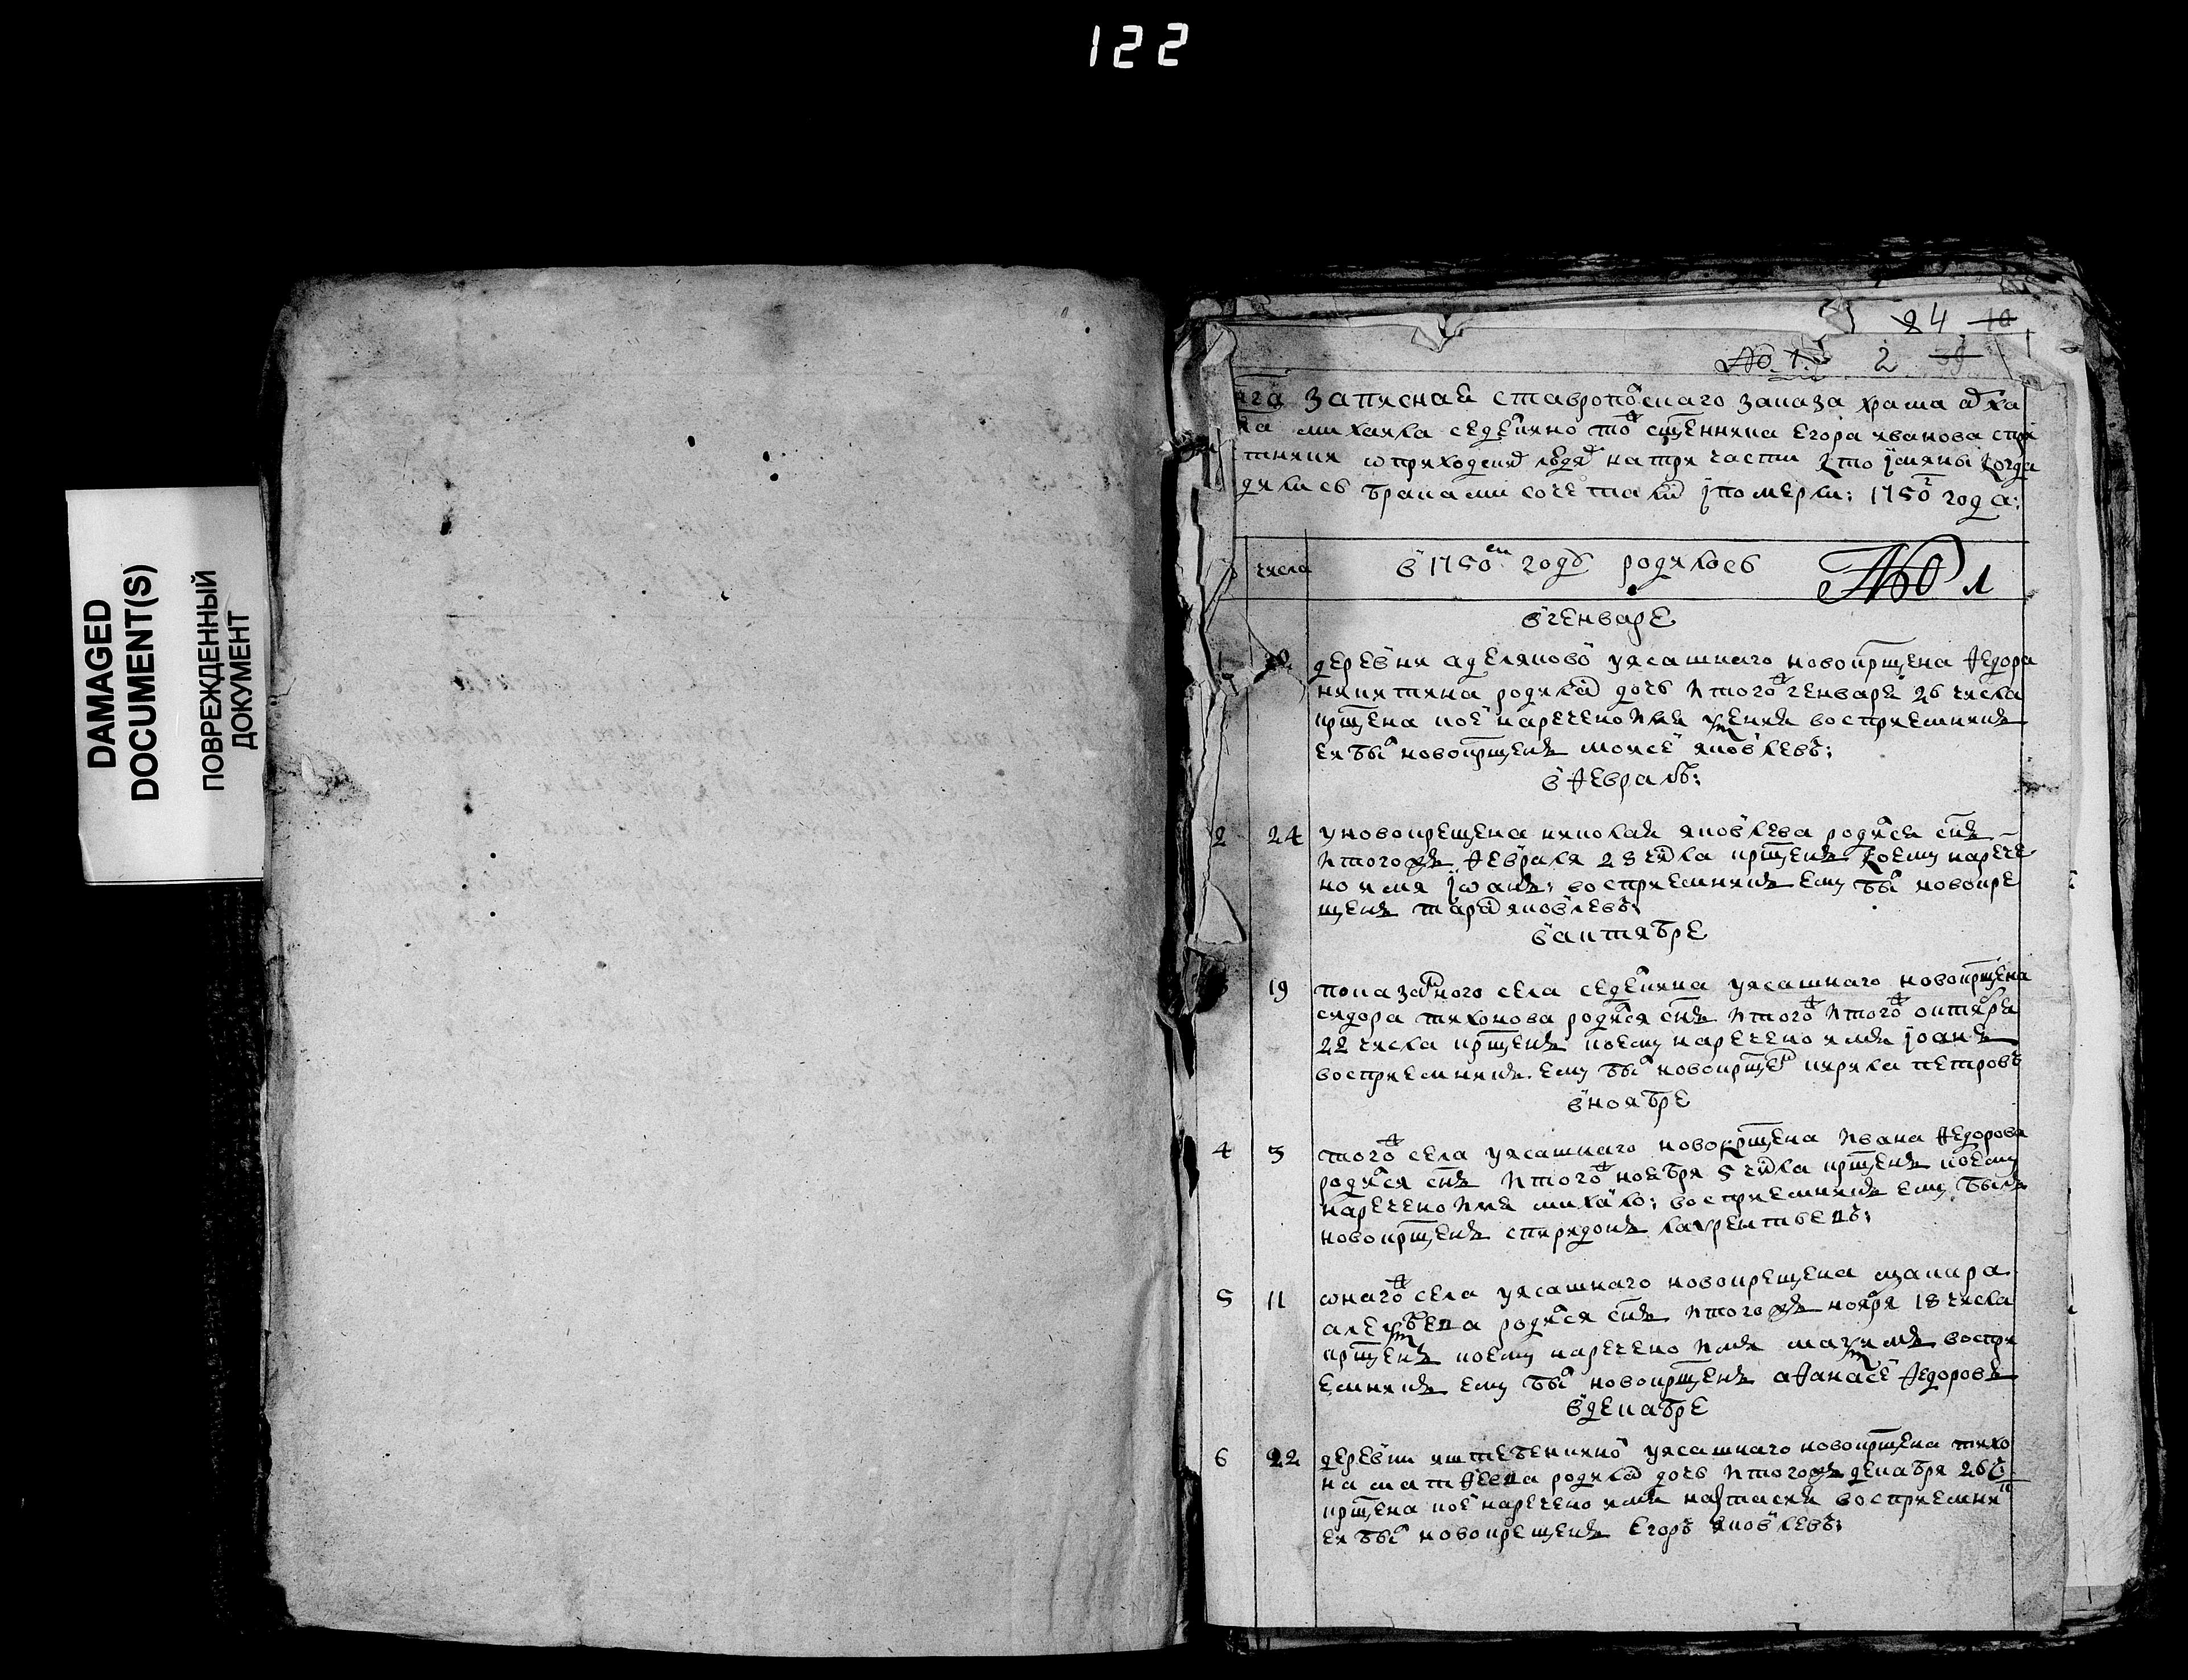 122
DAMAGED
DOCUMENT(S)
ПОВРЕЖДЕННЫЙ
ДОКУМЕНТ
84 10
№ 1. 2 39
нга записная ставропоскаго заказа храма арха
ла михаила седекино тоⷤ сщенника егора иванова спри
тники ѿ приходскиⷯ людеⷯ на три части кто имяны когда
дились браками сочетались и померли: 1750г года:
числа в 1750м году родилось № 1
в генваре
1 20. деревни аделяковой уясашнаго новокрщена ѳедора
никитина родилась дочь и тогоⷤ генваря 26 числа
крщена коей наречено имя ксения восприемникъ
ея быⷧ новокрщенъ моисей яковлевъ:
в ѳеврале:
2 24 у новокрещена николая яковлева родиⷧся снъ
и тогожъ ѳевраля 28 числа крщенъ коему нарече
но имя iѡанъ: восприемникъ ему быⷧ новокре
щенъ тарас яковлевъ:
в октябре
19 показанного села седекина уясашнаго новокрщена
сидора тихонова родиⷧся снъ и тогоⷤ и тогоⷤ октября
22 числа крщенъ коему наречено имя iоанъ
восприемникъ ему быⷧ новокрщеⷩ кирила петровъ
в ноябре
4 3 тогоⷤ села уясашнаго новокрщена ивана ѳедорова
родиⷧся снъ и тогоⷤ ноября 5 числа крщенъ коему
наречено имя михайло: восприемникъ ему былъ
новокрщенъ спиридонъ лаврентьевъ:
5 11 ѡнагоⷤ села уясашнаго новокрещена
родиⷧся снъ и тогожъ ноября 18 числа
крщенъ коему наречено имя маѯимъ воспри
емникъ ему быⷧ новокрщенъ аѳанасей ѳедоровъ
в декабре
6 22 деревни уясашнаго новокрщена тихо
на матѳеева родилась дочь и тогожъ декабря 26 ч
крщена коей наречено имя настасия восприемниⷦ
ея быⷧ новокрещенъ егоръ яковлевъ: